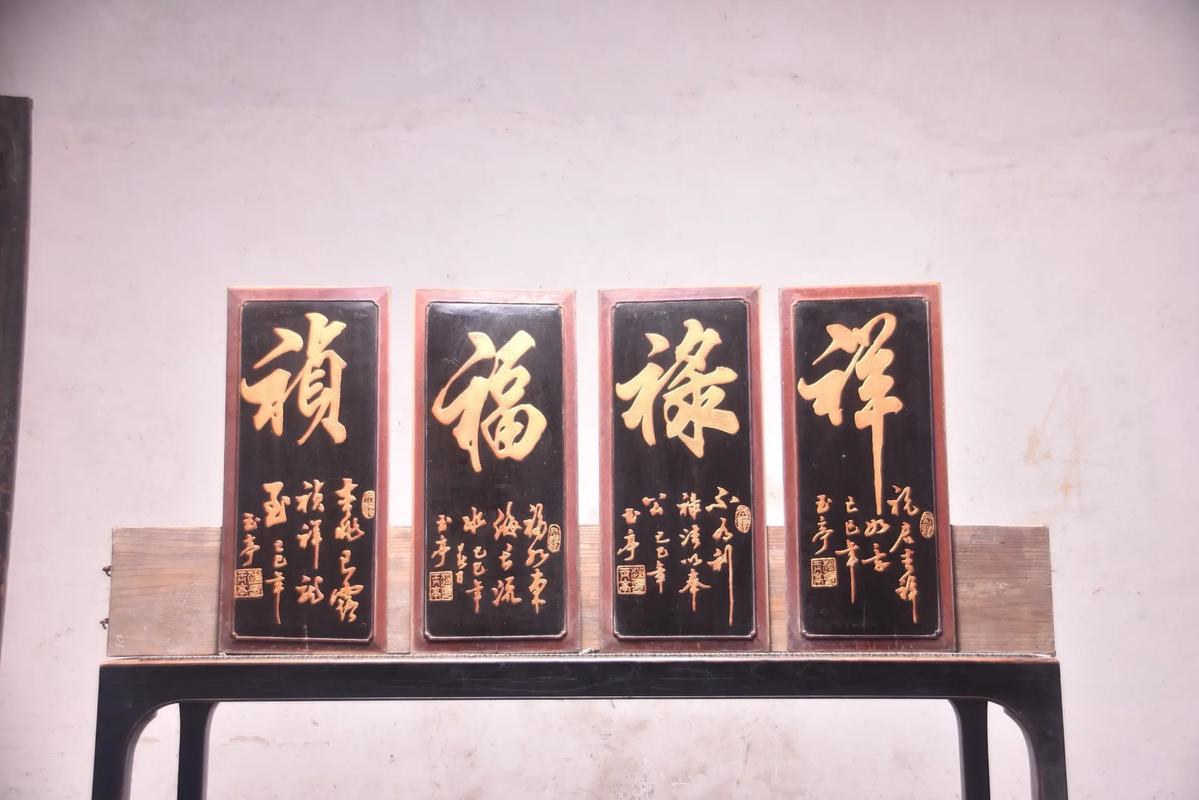 禎
吉兆已露
禎祥龍
至 己巳年
玉亭
福
福如東
海長流
水 己巳年
春日
玉亭
祿
不为利
祿清以奉
公 己巳年
玉亭
祥
如意
己巳年
玉亭